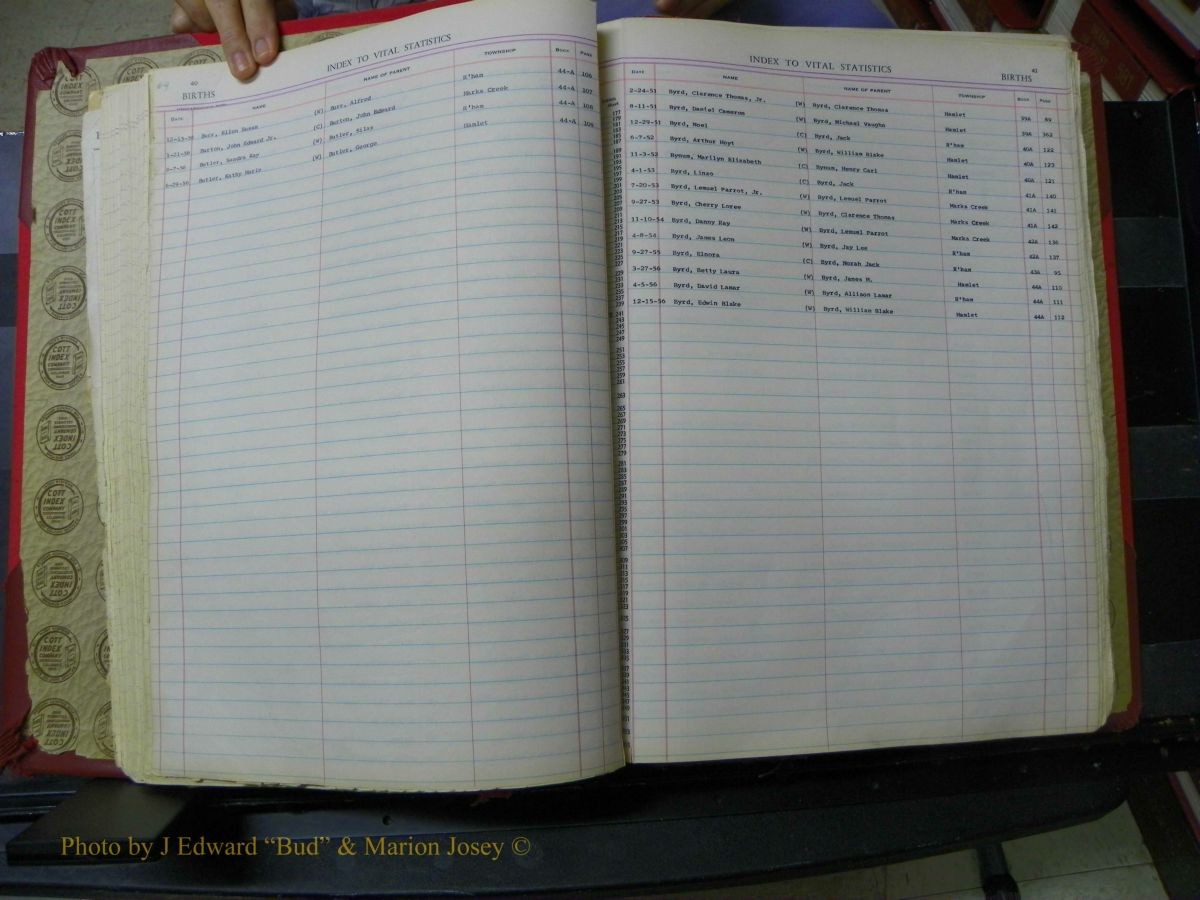 40
INDEX TO VITAL STATISTICS
BIRTHS
DATE NAME NAME OF PARENT TOWNSHIP BOOK PAGE
12-13-56 Burr, Ellen Susan (W) Burr, Alfred R'ham 44-A 106
1-21-56 Burton, John Edward Jr. (C) Burton, John Edward Marks Creek 44-A 107
Butler, Sandra Kay (W) Butler, Silas R'ham 44-A 108
Butler, Kathy Marie (W) Butler, George Hamlet 44-A 109
INDEX TO VITAL STATISTICS
41
BIRTHS
DATE NAME NAME OF PARENT TOWNSHIP BOOK PAGE
2-24-51 Byrd, Clarence Thomas, Jr. (W) Byrd, Clarence Thomas Hamlet 39A 89
8-11-51 Byrd, Daniel Cameron (W) Byrd, Michael Vaughn Hamlet 39A 362
12-29-51 Byrd, Noel (C) Byrd, Jack R'ham 40A 122
6-7-52 Byrd, Arthur Hoyt (W) Byrd, William Blake Hamlet 40A 123
11-3-52 Bynum, Marilyn Elizabeth (C) Bynum, Henry Carl Hamlet 40A 121
4-1-53 Byrd, Linzo (C) Byrd, Jack R'ham 41A 140
7-20-53 Byrd, Lemuel Parrot, Jr. (W) Byrd, Lemuel Parrot Marks Creek 41A 141
9-27-53 Byrd, Cherry Loree (W) Byrd, Clarence Thomas Marks Creek 41A 142
11-10-54 Byrd, Danny Ray (W) Byrd, Lemuel Parrot Marks Creek 42A 136
4-8-54 Byrd, James Leon (W) Byrd, Jay Lee R'ham 42A 137
9-27-55 Byrd, Elnora (C) Byrd, Norah Jack R'ham 43A 95
3-27-56 Byrd, Betty Laura (W) Byrd, James M. Hamlet 44A 110
4-5-56 Byrd, David Lamar (W) Byrd, Allison Lamar R'ham 44A 111
12-15-56 Byrd, Edwin Blake (W) Byrd, William Blake Hamlet 44A 112
COTT INDEX COMPANY
Photo by J Edward “Bud” & Marion Josey ©